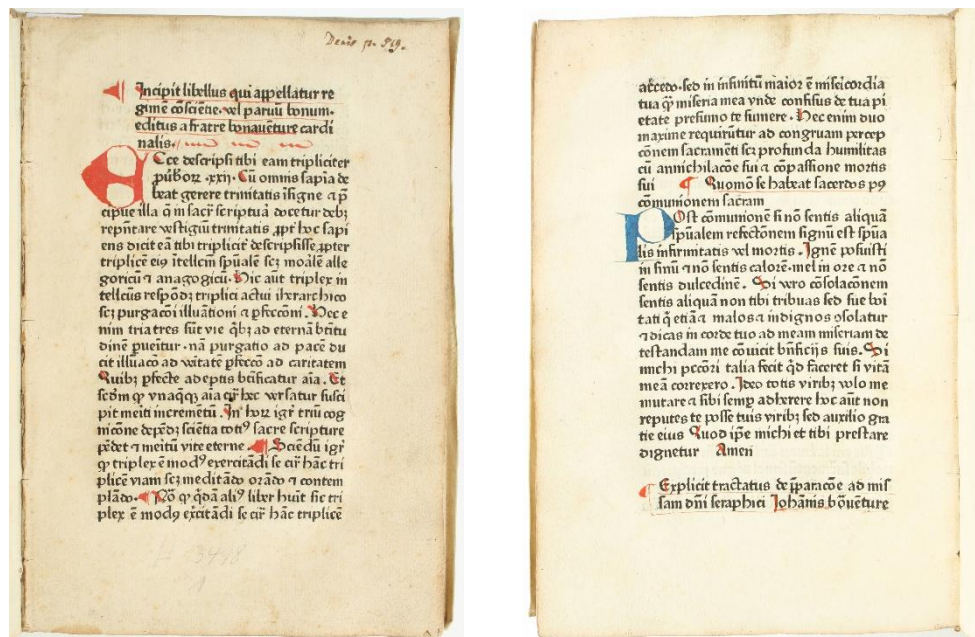 Denis p. 519.
Incipit libellus qui appellatur re
gimē cōsciētie. vel paruū bonum.
editus a fratre bonauēture cardi
nalis.
Ecce descripsi tibi eam tripliciter
ꝓuerbioꝝ .xxij. Cū omnis sapiā de
beat gerere trinitatis īsigne ⁊ p̄
cipue illa q̄ in sacř scriptura docetur debꝫ
rep̄ntare vestigiū trinitatis ꝓpt̄ hoc sapi
ens dicit eā tibi triplicit̄ descripsisse ꝓpter
triplicē eiꝰ ītellcm̄ spūalē scꝫ moālē alle
goricū ⁊ anagogicū. Hic aūt triplex in
tellcūs respōdꝫ triplici actui iherarchico
scꝫ purgacōi illuātioni ⁊ ꝑfeccōni. Hec e
nim tria tres sūt vie q̄bꝫ ad eternā btītu
dinē ꝑueītur. nā purgatio ad pacē du
cit illuīacō ad vitatē ꝑfeccō ad caritatem
Quibꝫ ꝑfecte adeptis btīficatur aīa. Et
scdm̄ ꝙ vnaqꝫ aīa cir̄ hec versatur susci
pit meīti incremētū. In hoꝝ igr̄ triū cog
nicōne depēdꝫ sciētia totiꝰ sacre scripture
pēdet ⁊ meītū vite eterne. Sciēdū igr̄
ꝙ triplex ē modꝰ exercitādi se cir̄ hāc tri
plicē viam scꝫ meditādo orādo ⁊ contem
plādo. Nō ꝙ q̄dā aliꝰ liber hūit sic tri
plex ē modꝰ exc̄itādi se cir̄ hāc triplicē
accedo. sed in infinitū maior ē misericordia
tua q̄ miseria mea vnde confisus de tua pi
etate presumo te sumere. Hec enim duo
maxime requirūtur ad congruam percep
cōnem sacramēti scꝫ profunda humilitas
cū annichilacōe sui ⁊ cōpassione mortis
sui Quomō se habeat sacerdos pꝰ
cōmunionem sacram
Post cōmunionē si nō sentis aliquā
spūalem refectōnem signū est spūa
lis infirmitatis vel mortis. Ignē posuisti
in sinu ⁊ nō sentis calorē. mel in ore ⁊ nō
sentis dulcedinē. Si vero cōsolacōnem
sentis aliquā non tibi tribuas sed sue boī
tati q̄ etiā ⁊ malos ⁊ indignos ꝯsolatur
⁊ dicas in corde tuo ad meam miseriam de
testandam me cōuicit bn̄ficijs suis. Si
michi pccōri talia fecit qd̄ faceret si vitā
meā correxero. Ideo totis viribꝫ volo me
mutare ⁊ sibi semꝑ adherere hoc aūt non
reputes te posse tuis viribꝫ sed auxilio gra
tie eius Quod ip̄e michi et tibi prestare
dignetur Amen
Explicit tractatus de p̄paracōe ad mis
sam dn̄i seraphici Johānis bōuēture